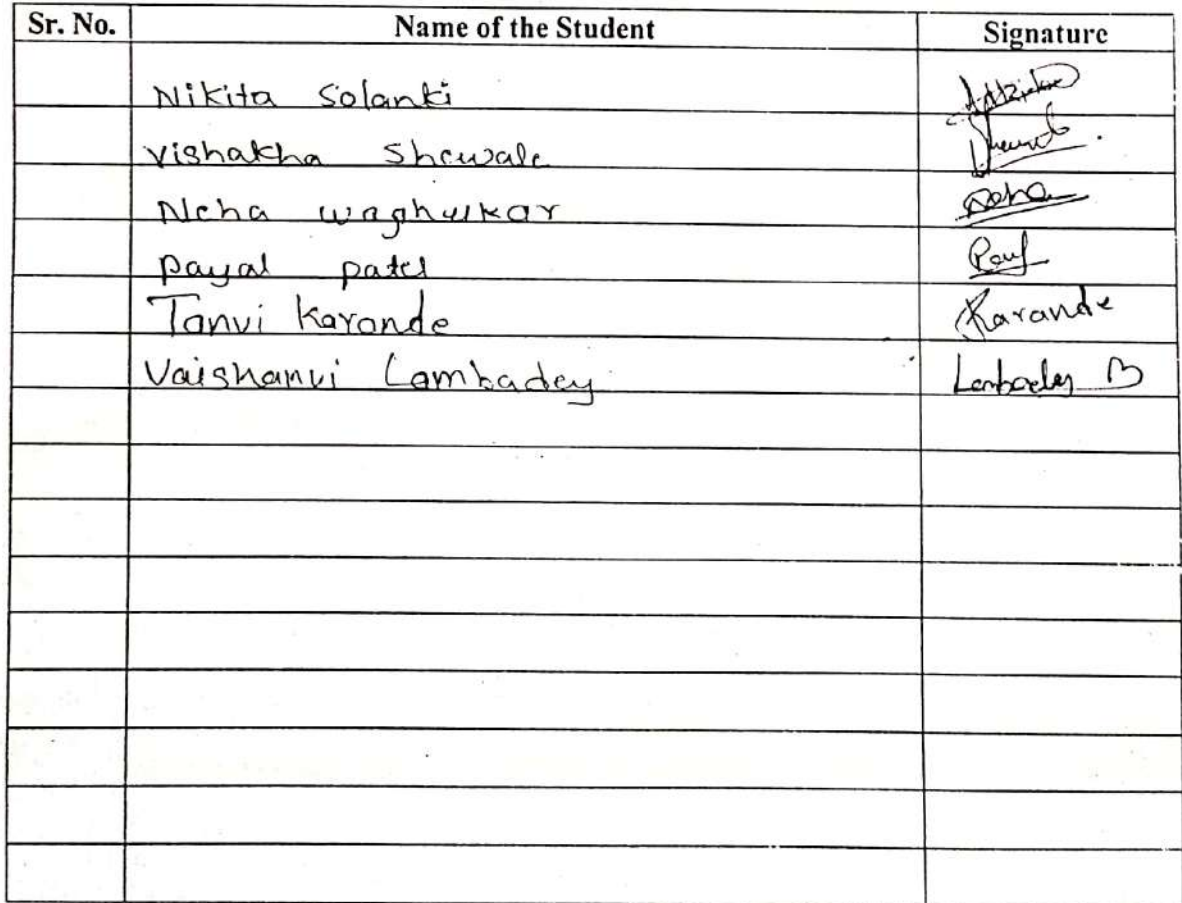 Sr. No. Name of the Student Signature
Nikita Solanki
Vishakha Shewale
Neha Waghulkar Neha
Payal patel
Tanvi Karande Karande
Vaishanvi Lambadey Lambadey